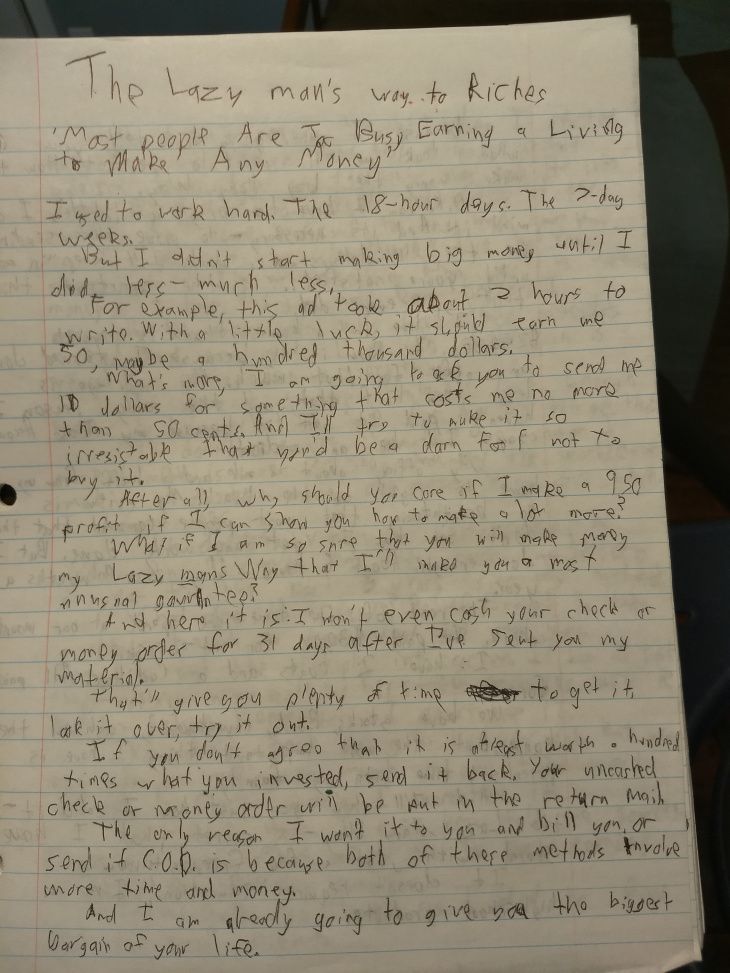 The Lazy man's way to Riches
'Most people Are Too Busy Earning a Living
to Make Any Money"
I used to work hard. The 18-hour days. The 7-day
weeks.
But I didn't start making big money until I
did less - much less.
For example, this ad took about 2 hours to
write. With a little luck, it should earn me
50, maybe a hundred thousand dollars.
What's more, I am going to ask you to send me
10 dollars for something that costs me no more
than 50 cents. And I'll try to make it so
irresistable that you'd be a darn fool not to
buy it.
After all, why should you care if I make a 950
profit if I can show you how to make a lot more?
What if I am so sure that you will make money
my Lazy mans Way that I'll make you a most
unusual
And here it is: I won't even cash your check or
money order for 31 days after I've sent you my
material.
That'll give you plenty of time to get it,
look it over, try it out.
If you don't agree that it is atleast worth a hundred
times what you invested, send it back. Your uncashed
check or money order will be put in the return mail
The only reason I won't it to you and bill you, or
send it C.O.D. is because both of these methods involve
more time and money.
And I am already going to give you the biggest
bargain of your life.